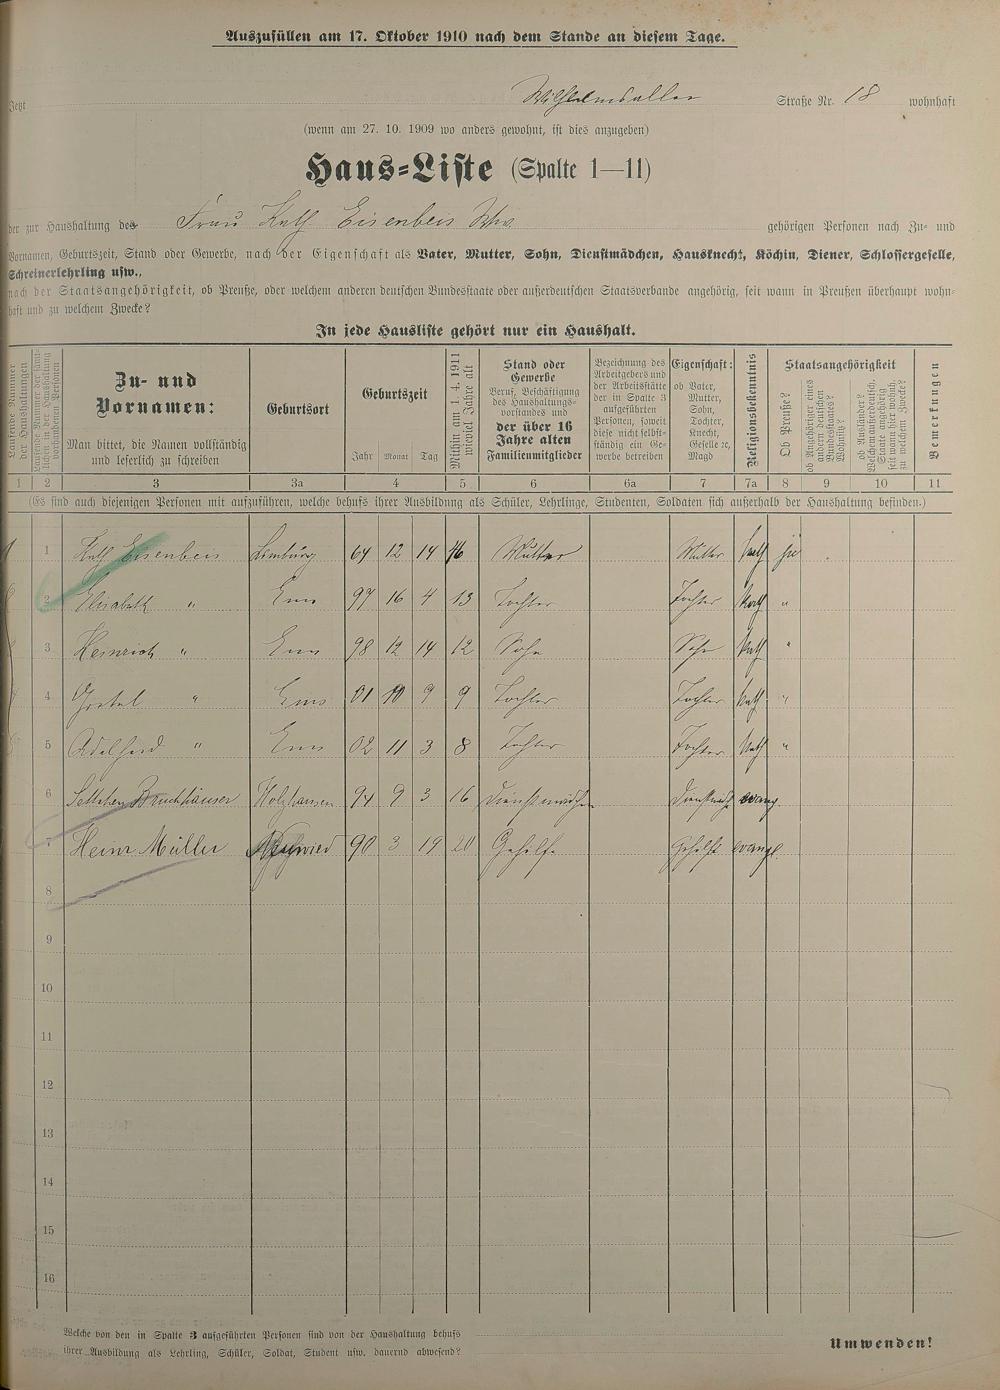 Auszufüllen am 17. Oktober 1910 nach dem Stande an diesem Tage.
Jetzt Wilhelmsallee Straße Nr. 18 wohnhaft
(wenn am 27. 10. 1909 wo anders gewohnt, ist dies anzugeben)
Haus=Liste (Spalte 1—11)
der zur Haushaltung des Frau Kath Eisenbeis Ww. gehörigen Personen nach Zu= und
Vornamen, Geburtszeit, Stand oder Gewerbe, nach der Eigenschaft als Vater, Mutter, Sohn, Dienstmädchen, Hausknecht, Köchin, Diener, Schlossergeselle,
Schreinerlehrling usw.,
nach der Staatsangehörigkeit, ob Preuße, oder welchem anderen deutschen Bundesstaate oder außerdeutschen Staatsverbande angehörig, seit wann in Preußen überhaupt wohn=
haft und zu welchem Zwecke?
In jede Hausliste gehört nur ein Haushalt.
Laufende Nummer der Haushaltungen
Laufende Nummer der sämt=lichen in der Haushaltung vorhandenen Personen
Zu= und
Vornamen:
Man bittet, die Namen vollständig
und leserlich zu schreiben
Geburtsort
Geburtszeit
Jahr Monat Tag
Mithin am 1. 4. 1911 wieviel Jahre alt
Stand oder
Gewerbe
Beruf, Beschäftigung
des Haushaltungs=
vorstandes und
der über 16
Jahre alten
Familienmitglieder
Bezeichnung des
Arbeitgebers und
der Arbeitsstätte
der in Spalte 3
aufgeführten
Personen, soweit
diese nicht selbst=
ständig ein Ge=
werbe betreiben
Eigenschaft:
ob Vater,
Mutter,
Sohn,
Tochter,
Knecht,
Geselle ꝛc,
Magd
Religionsbekenntnis
Staatsangehörigkeit
Ob Preuße?
ob Angehöriger eines andern deutschen Bundesstaates? Woselbst?
ob Ausländer? Welchem außerdeutsch. Staate angehörig seit wann hier wohnh. zu welchem Zwecke?
Bemerkungen
1 2 3 3a 4 5 6 6a 7 7a 8 9 10 11
(Es sind auch diejenigen Personen mit aufzuführen, welche behufs ihrer Ausbildung als Schüler, Lehrlinge, Studenten, Soldaten sich außerhalb der Haushaltung befinden.)
1 Kath Eisenbeis Limburg 64 12 14 46 Mutter Mutter kath ja
2 Elisabeth " Ems 97 16 4 13 Tochter Tochter kath "
3 Heinrich " Ems 98 12 14 12 Sohn Sohn kath "
4 Gretel " Ems 01 10 9 9 Tochter Tochter kath "
5 " Ems 02 11 3 8 Tochter Tochter kath "
6 Bruchhäuser Holzhausen 94 9 3 16 Dienstmädchen evang
7 Heinr Müller 90 3 19 20 Gehilfe Gehilfe evangl.
8
9
10
11
12
13
14
15
16
Welche von den in Spalte 3 aufgeführten Personen sind von der Haushaltung behufs
ihrer Ausbildung als Lehrling, Schüler, Soldat, Student usw. dauernd abwesend?
Umwenden!